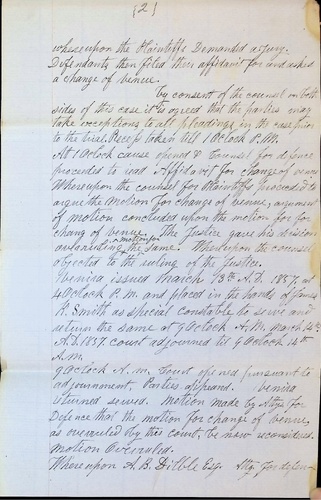 [2]
whereupon the Plaintiffs Demanded a Jury.
Defendants then filed their affidavit for and asked
a change of venue.
By consent of the counsel on both
sides of this case it is agreed that the parties may
take exceptions to all pleadings in the case prior
to the trial. Recess taken till 1 Oclock P.M.
At 1 Oclock cause opened & Counsel for defence
proceeded to read Affidavit for change of venue
Whereupon the counsel for Plaintiffs proceeded to
argue the Motion for change of venue, argument
of motion concluded upon the motion for for
chang of venue. The Justice gave his decision
overruling the motion for same. Whereupon the counsel
objected to the ruling of the Justice.
Venira issued March 13th A.D. 1857, at
4 Oclock P.M. and placed in the hands of James
R. Smith as special constable to serve and
return the same at 9 Oclock A.M. March 14th
A.D. 1857. court adjourned til 9 Oclock 14th
A.M.
9 Oclock A.M. Court opened pursuant to
adjournment. Parties appeared. Venira
returned served. Motion made by Attys for
Defence that the motion for change of venue
as overruled by this court, be now reconsidered.
Motion Overruled.
Whereupon A. B. Dibble Esq. Atty for defence